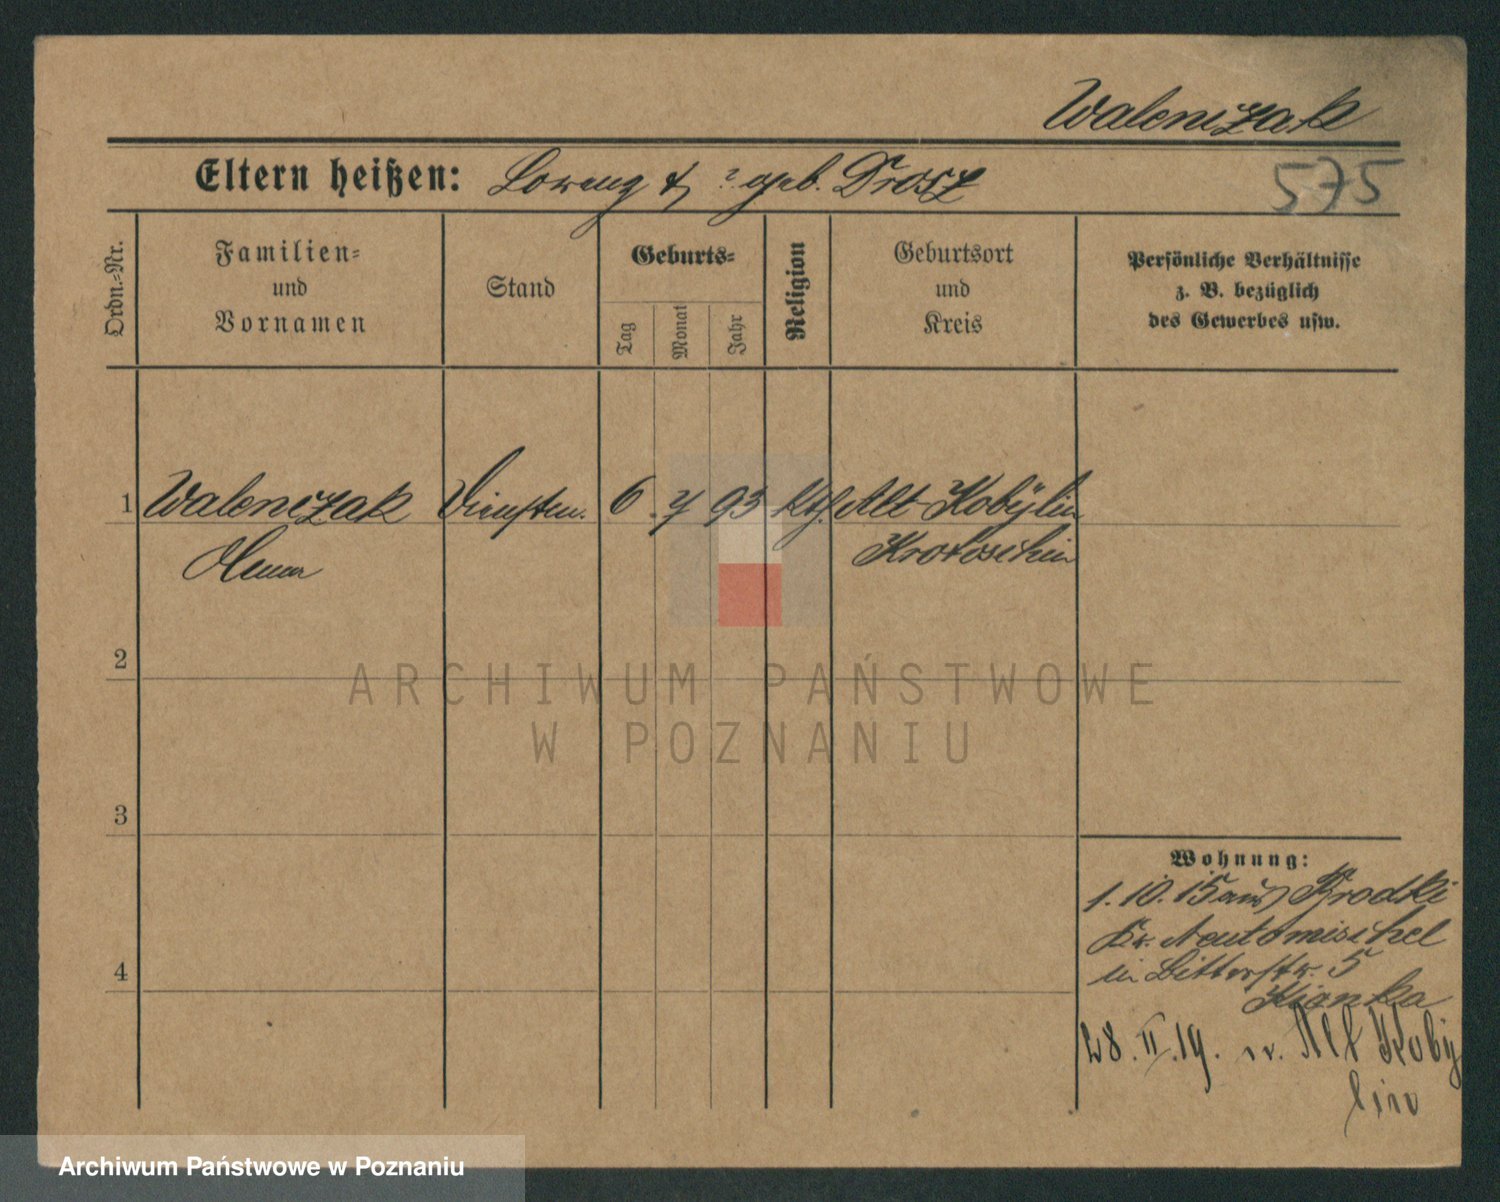 Walenczak
Eltern heißen: Lorenz & ? geb. Drosz
575
Ordn.-Nr.
Familien-
und
Vornamen
Stand
Geburts-
Tag
Monat
Jahr
Religion
Geburtsort
und
Kreis
Persönliche Verhältnisse
z. B. bezüglich
des Gewerbes usw.
1 Walenczak Dienstm. 6. 7 93 kth. Alt-Kobylin
Krotoschin
2
3
4
Wohnung:
1.10.15 aus Brodki
Kr. Neutomischel
in Ritterstr. 5
28.II.19. Alt Koby
lin
ARCHIWUM PAŃSTWOWE
W POZNANIU
Archiwum Państwowe w Poznaniu